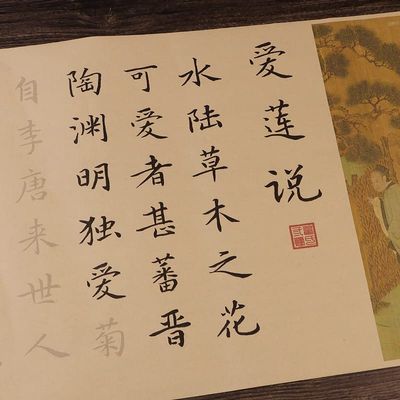 爱莲说
水陆草木之花
可爱者甚蕃晋
陶渊明独爱菊
自李唐来世人